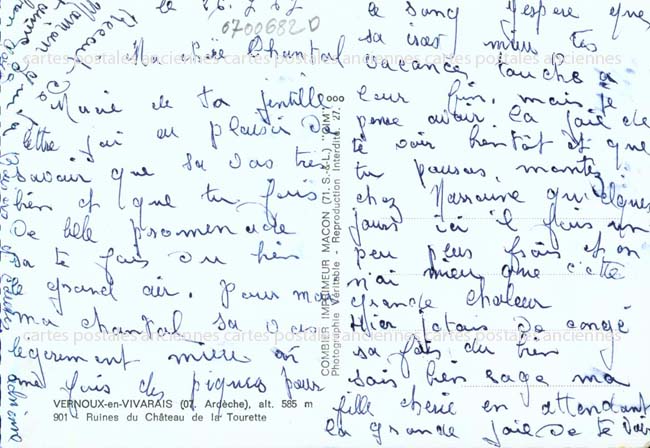 le 26.8.67
0700682D
Ma chère Chantal
Munie de ta gentille
lettre j'ai eu plaisir de
savoir que sa vas très
bien et que tu fais
de belle promenade
sa te fais du bien
le grand air. pour moi
ma chantal sa vas
légèrement mieux on
me fais des piqures pour
le sang j'espère que
sa iras mieu tes
vacances touche à
leur fin, mais je
pense avoir la joie de
te voir bientôt et que
tu pourras, monter
chez Marraine quelques
jours ici il fais un
peu plus frais et on
n'ai mieu que cette
grande chaleur
Hier j'étais de congé
sa fais du bien
sois bien sage ma
fille chérie en attendant
la grande joie de te voir
cartes postales anciennes cartes postales anciennes cartes postales anciennes
cartes postales anciennes cartes postales anciennes cartes postales anciennes
COMBIER IMPRIMEUR MACON (71. S.-&-L.) "CIM"
Photographie Véritable - Reproduction Interdite. 27.
VERNOUX-en-VIVARAIS (07. Ardèche), alt. 585 m
901 - Ruines du Château de la Tourette